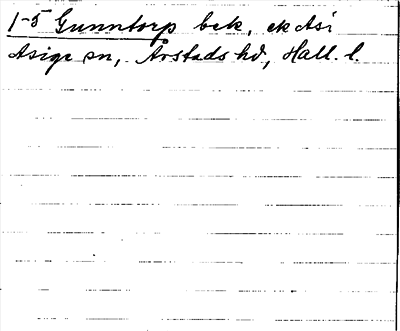 1-5 Gunntorp bek, ek Asi
Asige sn, Årstads hd, Hall. l.